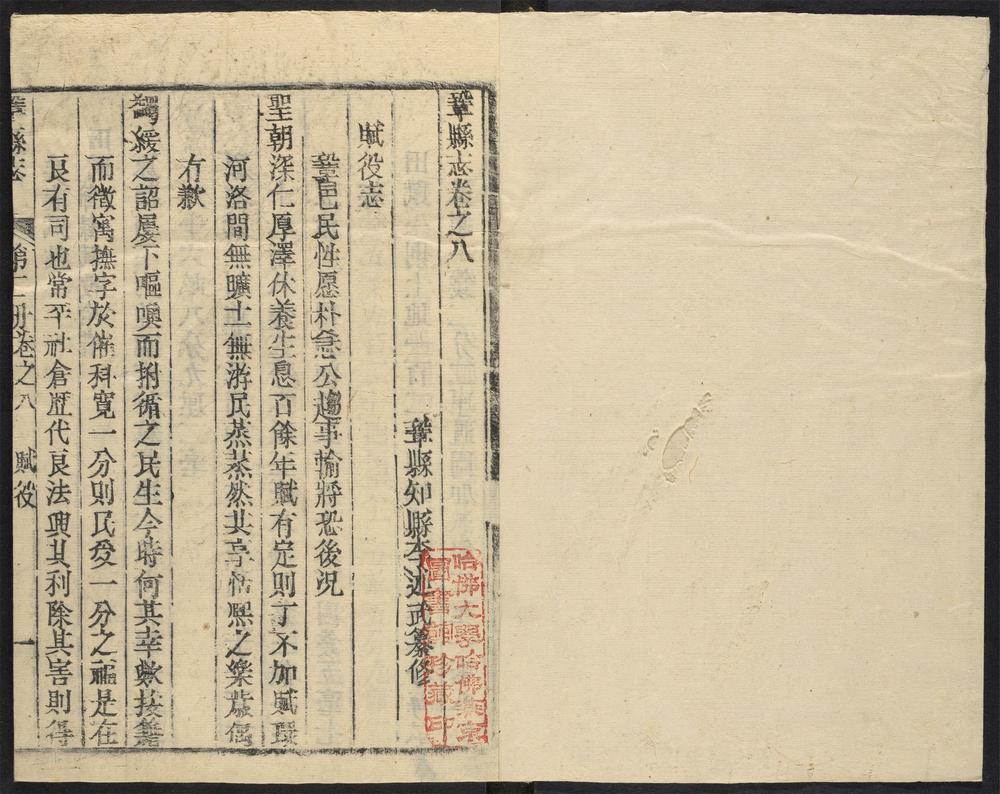 鞏縣志卷之八
鞏縣知縣李述武纂修
賦役志
鞏邑民性愿朴急公趨事輸將恐後況
聖朝深仁厚澤休養生息百餘年賦有定則丁不加賦環
河洛間無曠土無游民蒸蒸然共享恬熙之樂莊偶
冇歉
蠲緩之詔屢下嘔噢而拊循之民生今時何其幸歟按籍
而徵寓撫字於催科寬一分則民受一分之福是在
良有司也常平社倉歷代良法興其利除其害則得
鞏縣志
第二冊卷之八
賦役
一
哈佛大學哈佛燕京
圖書館珍藏印